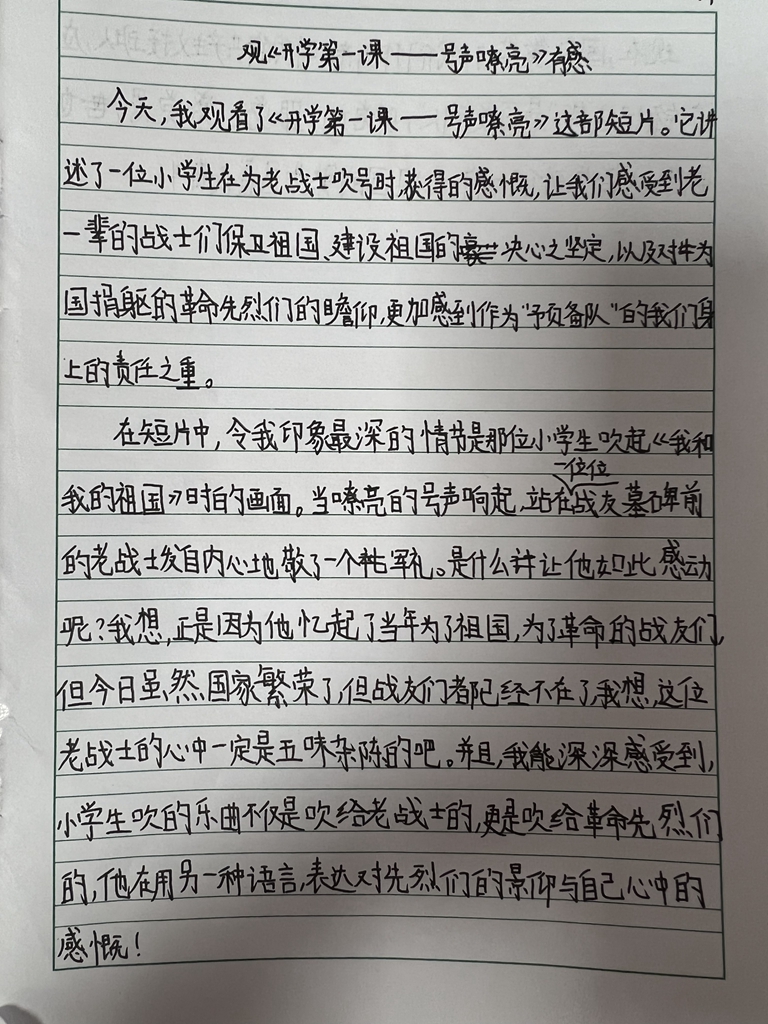 观《开学第一课——号声嘹亮》有感
今天，我观看了《开学第一课——号声嘹亮》这部短片。它讲
述了一位小学生在为老战士吹号时，获得的感慨，让我们感受到老
一辈的战士们保卫祖国、建设祖国的决心之坚定，以及对牛为
国捐躯的革命先烈们的瞻仰，更加感到作为“预备队”的我们身
上的责任之重。
在短片中，令我印象最深的情节是那位小学生吹起《我和
我的祖国》时的画面。当嘹亮的号声响起，站在一位位战友墓碑前
的老战士发自内心地敬了一个军礼。是什么让他如此感动
呢？我想，正是因为他忆起了当年为了祖国，为了革命的战友们，
但今日虽然国家繁荣了，但战友们都已经不在了，我想，这位
老战士的心中一定是五味杂陈的吧。并且，我能深深感受到，
小学生吹的乐曲不仅是吹给老战士的，更是吹给革命先烈们
的，他在用另一种语言，表达对先烈们的景仰与自己心中的
感慨！